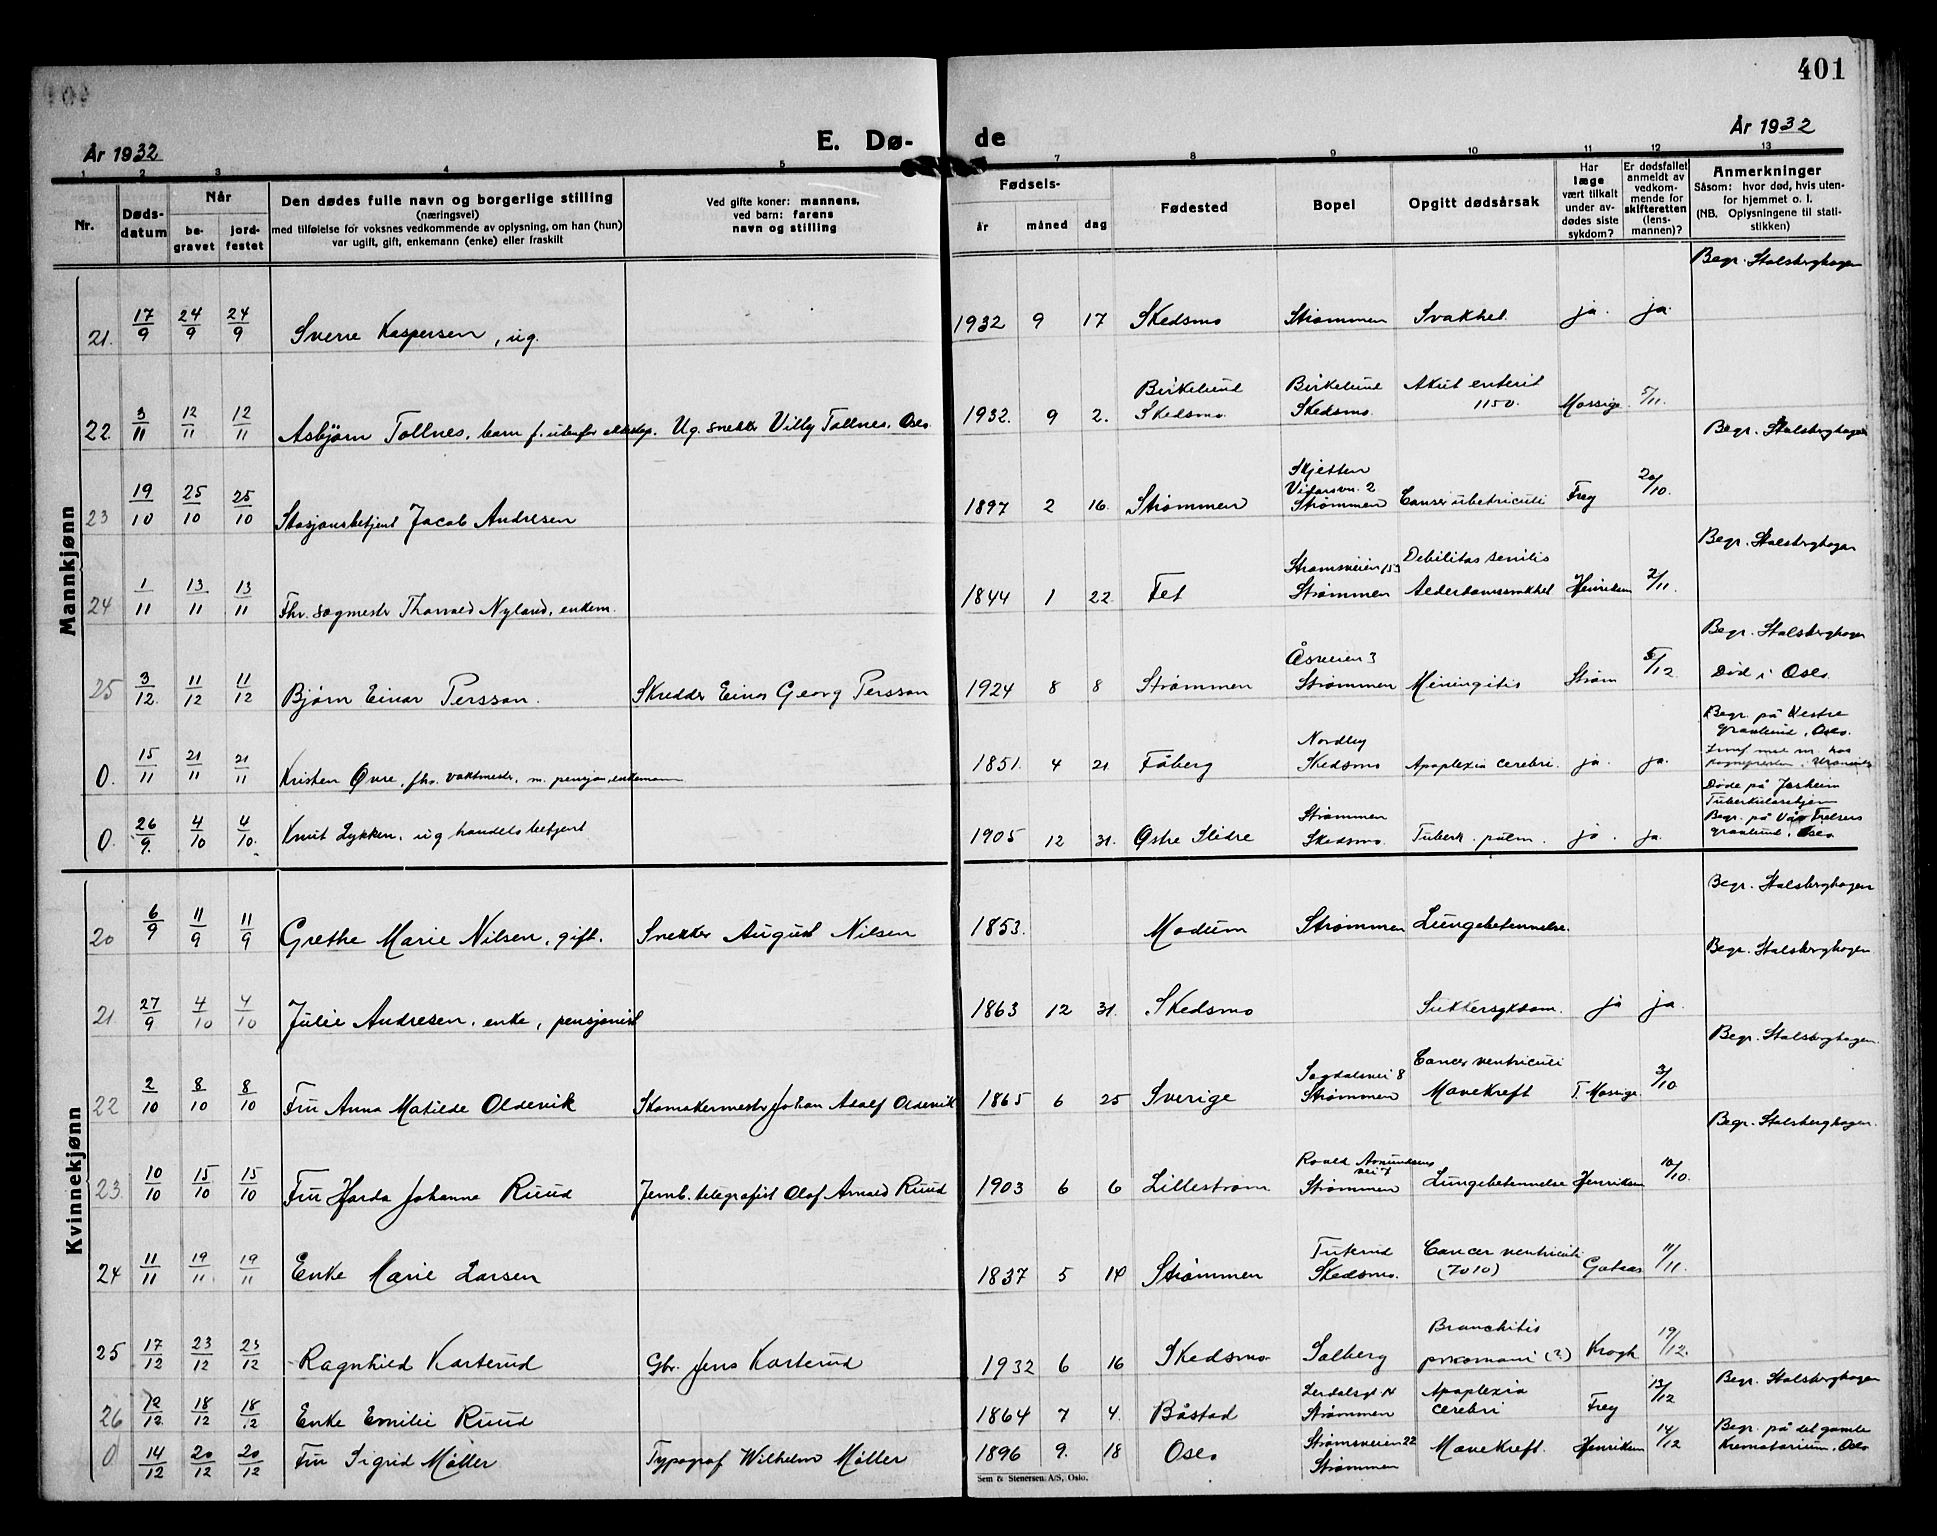 401
År 1932
E. Dø-
de
År 1932
1 2 3 4 5 7 8 9 10 11 12 13
Nr.
Døds-
datum
Når
be-
gravet
jord-
festet
Den dødes fulle navn og borgerlige stilling
(næringsvei)
med tilføielse for voksnes vedkommende av oplysning, om han (hun)
var ugift, gift, enkemann (enke) eller fraskilt
Ved gifte koner: mannens,
ved barn: farens
navn og stilling
Fødsels-
år måned dag
Fødested
Bopel
Opgitt dødsårsak
Har
læge
vært tilkalt
under av-
dødes siste
sykdom?
Er dødsfallet
anmeldt av
vedkom-
mende for
skifteretten
(lens-
mannen)?
Anmerkninger
Såsom: hvor død, hvis uten-
for hjemmet o. l.
(NB. Oplysningene til stati-
stikken)
Mannkjønn
Begr. Stalsberghagen
21. 17/9 24/9 24/9 Sverre Kaspersen, ug. 1932 9 17 Skedsmo Strømmen Svakhet. ja. ja.
Birkelund Birkelund Akut enterit
22. 3/11 12/11 12/11 Asbjørn Tollnes, barn f. utenfor ektesk. Ug. snekker Villy Tollnes, Oslo. 1932. 9 2. Skedsmo. Skedsmo. 1150. Mossige 5/11.
Begr. Stalsberghagen
Skjetten
Vitarsvn. 2
23 19/10 25/10 25/10 Stasjonsbetjent Jacob Andresen 1897 2 16. Strømmen Strømmen Cancer Frey 20/10.
Begr. Stalsberghagen
Strømsveien 153 Debilitas senilis
24 1/11 13/11 13/11 Fhv. sagmestr Thorvald Nyland, enkem. 1844 1 22. Fet Strømmen Alderdomssvakhet Henriksen 2/11.
Begr. Stalsberghagen
Åsveien 3
25 3/12. 11/12 11/12 Bjørn Einar Persson. Skredder Einar Georg Persson 1924 8 8 Strømmen Strømmen Miningitis Strøm 5/12 Død i Oslo.
Begr. på Vestre
gravlund, Oslo.
Nordby
0. 15/11 21/11 21/11 Kristen Øvre, fhv. vaktmestr, m. pensjon, enkemann 1851. 4 21 Fåberg Skedsmo Apoplexia cerebri. ja. ja.
Døde på Jesheim
Tuberkulosehjem
Begr. på Vår Frelsers
gravlund, Oslo
Strømmen
0. 26/9. 4/10 4/10. Knut Lykken, ug handelsbetjent 1905 12 31. Østre Slidre Skedsmo. Tuberk. pulm. ja. ja.
Kvinnekjønn
Begr. Stalsberghagen
20 6/9 11/9 11/9 Grethe Marie Nilsen, gift. Snekker August Nilsen 1853. Modum Strømmen Lungebetennelse.
Begr. Stalsberghagen
21. 27/9 4/10 4/10 Julie Andresen, enke, pensjonist 1863 12 31. Skedsmo Sukkersykdom. ja ja.
Begr. Stalsberghagen.
Sagdalsvei 8 Cancer ventriculi
22 2/10 8/10 8/10 Fru Anna Matilde Oldevik Skomakermestr Johan Adolf Oldevik 1865 6 25 Sverige Strømmen Mavekreft T. Mossige 3/10
Begr. Stalsberghagen.
Roald Amundsens
vei 7
23. 10/10 15/10 15/10 Fru Harda Johanne Ruud Jernb. telegrafist Olaf Arnold Ruud 1903 6 6 Lillestrøm Strømmen Lungebetennelse Henriksen 10/10.
Tuterud Cancer ventriculi
24 11/11 19/11. 19/11 Enke Marie Larsen 1837 5 14 Strømmen Skedsmo. (7010) Gataas 11/11.
Bronchitis
25 17/12 23/12 23/12 Ragnhild Karterud Gbr. Jens Karterud 1932 6 16 Skedsmo Solberg (?) Krogh 19/12.
Begr. Stalsberghagen
Lerdalsgt 14 Apoplexia
26 12/12 18/12 18/12 Enke Emilie Ruud 1864 7 4. Båstad Strømmen cerebri Frey 13/12
Begr. på det gamle
Krematorium, Oslo
Strømsveien 22
0 14/12 20/12 20/12 Fru Sigrid Møller Typograf Wilhelm Møller 1896 9. 18 Oslo Strømmen Mavekreft. Henriksen 14/12
Sem & Stenersen A/S, Oslo.